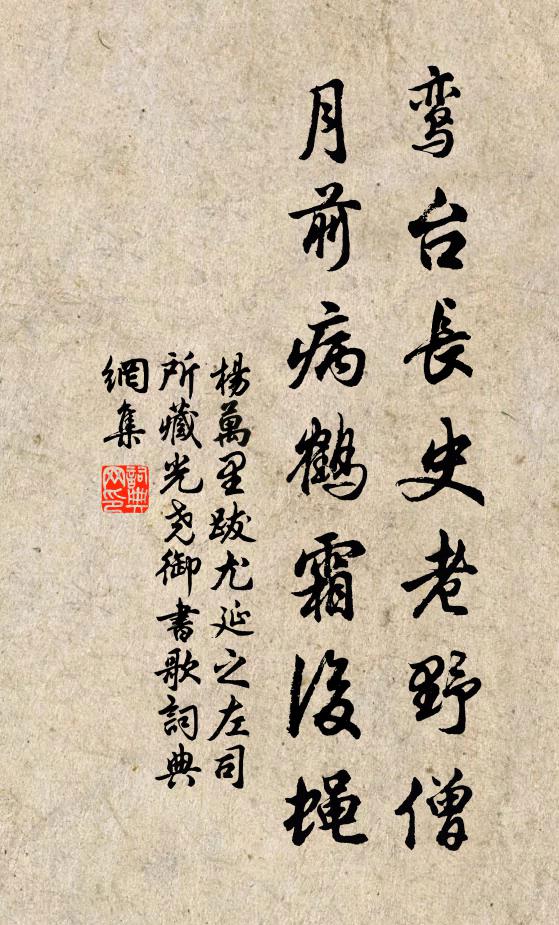 鸾台長史老野僧
月前病鶴霜後蝇
楊萬里跋尤延之左司
所藏光尧御書歌詞典
網集
詞典網印